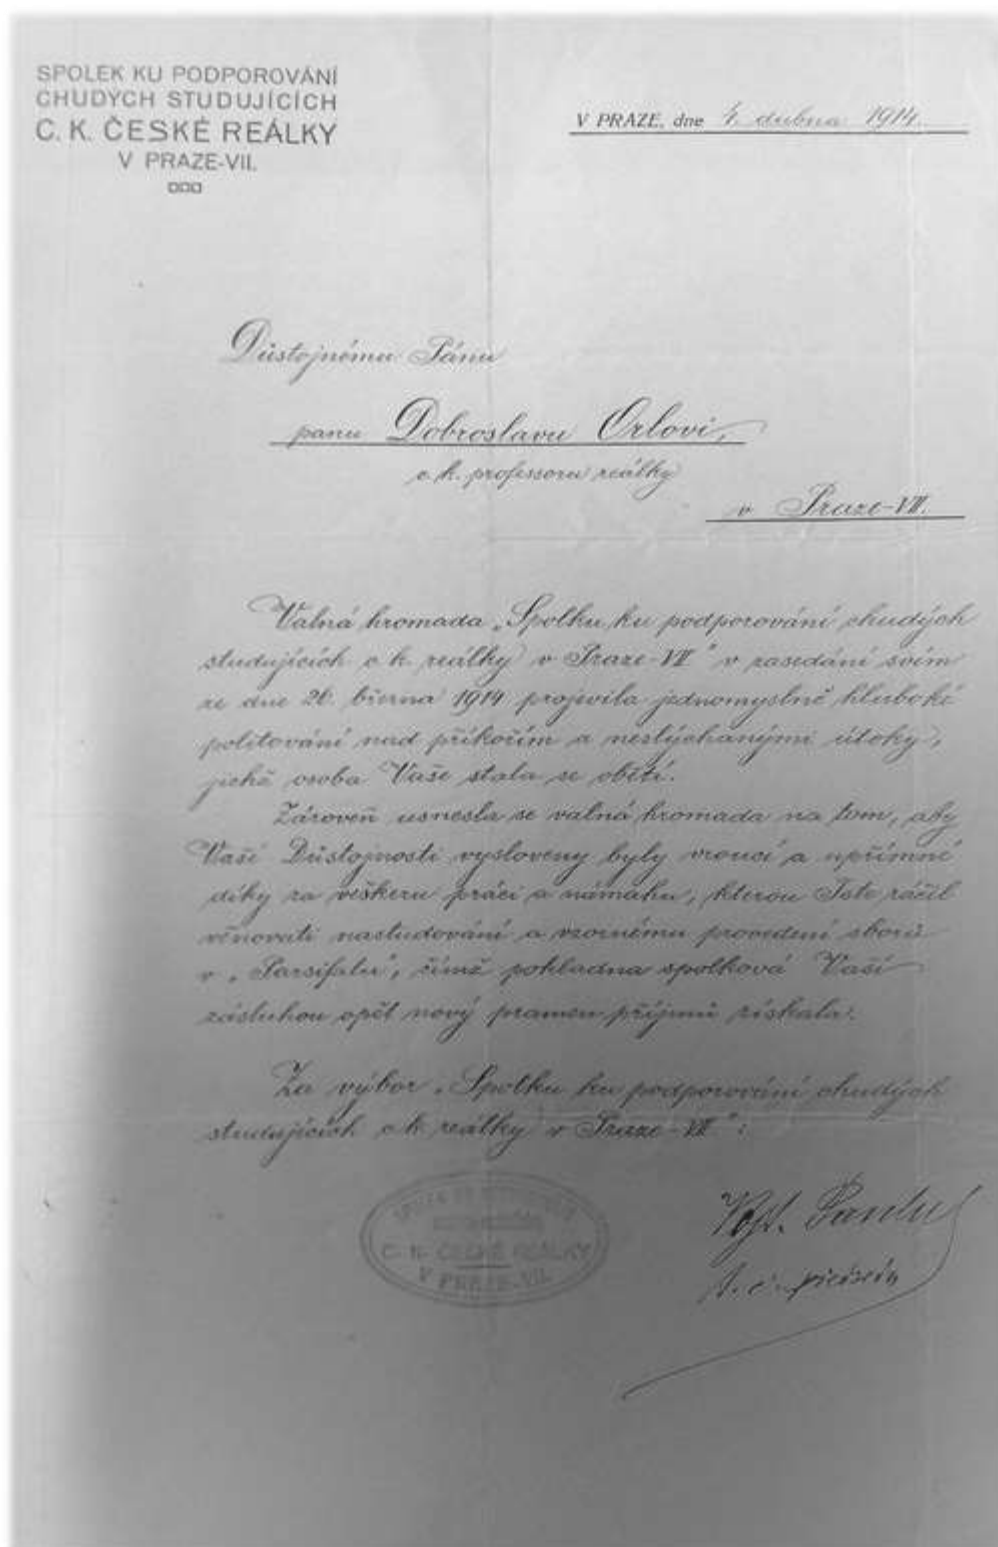 SPOLEK KU PODPOROVÁNÍ
CHUDÝCH STUDUJÍCÍCH
C. K. ČESKÉ REÁLKY
V PRAZE-VII.
V PRAZE, dne 4. dubna 1914.
Důstojnému Pánu
panu Dobroslavu Orlovi,
c. k. professoru reálky
v Praze-VII.
Valná hromada „Spolku ku podporování chudých
studujících c. k. reálky v Praze-VII" v zasedání svém
ze dne 26. března 1914 projevila jednomyslně hluboké
politování nad příkořím a neslýchanými útoky,
jichž osoba Vaše stala se obětí.
Zároveň usnesla se valná hromada na tom, aby
Vaší Důstojnosti vysloveny byly vroucí a upřímné
díky za veškeru práci a námahu, kterou Jste ráčil
věnovati nastudování a vzornému provedení sborů
v „Parsifalu", čímž pokladna spolková Vaší
zásluhou opět nový pramen příjmů získala.
Za výbor „Spolku ku podporování chudých
studujících c. k. reálky v Praze-VII":
C. K. ČESKÉ REÁLKY
V PRAZE-VII.